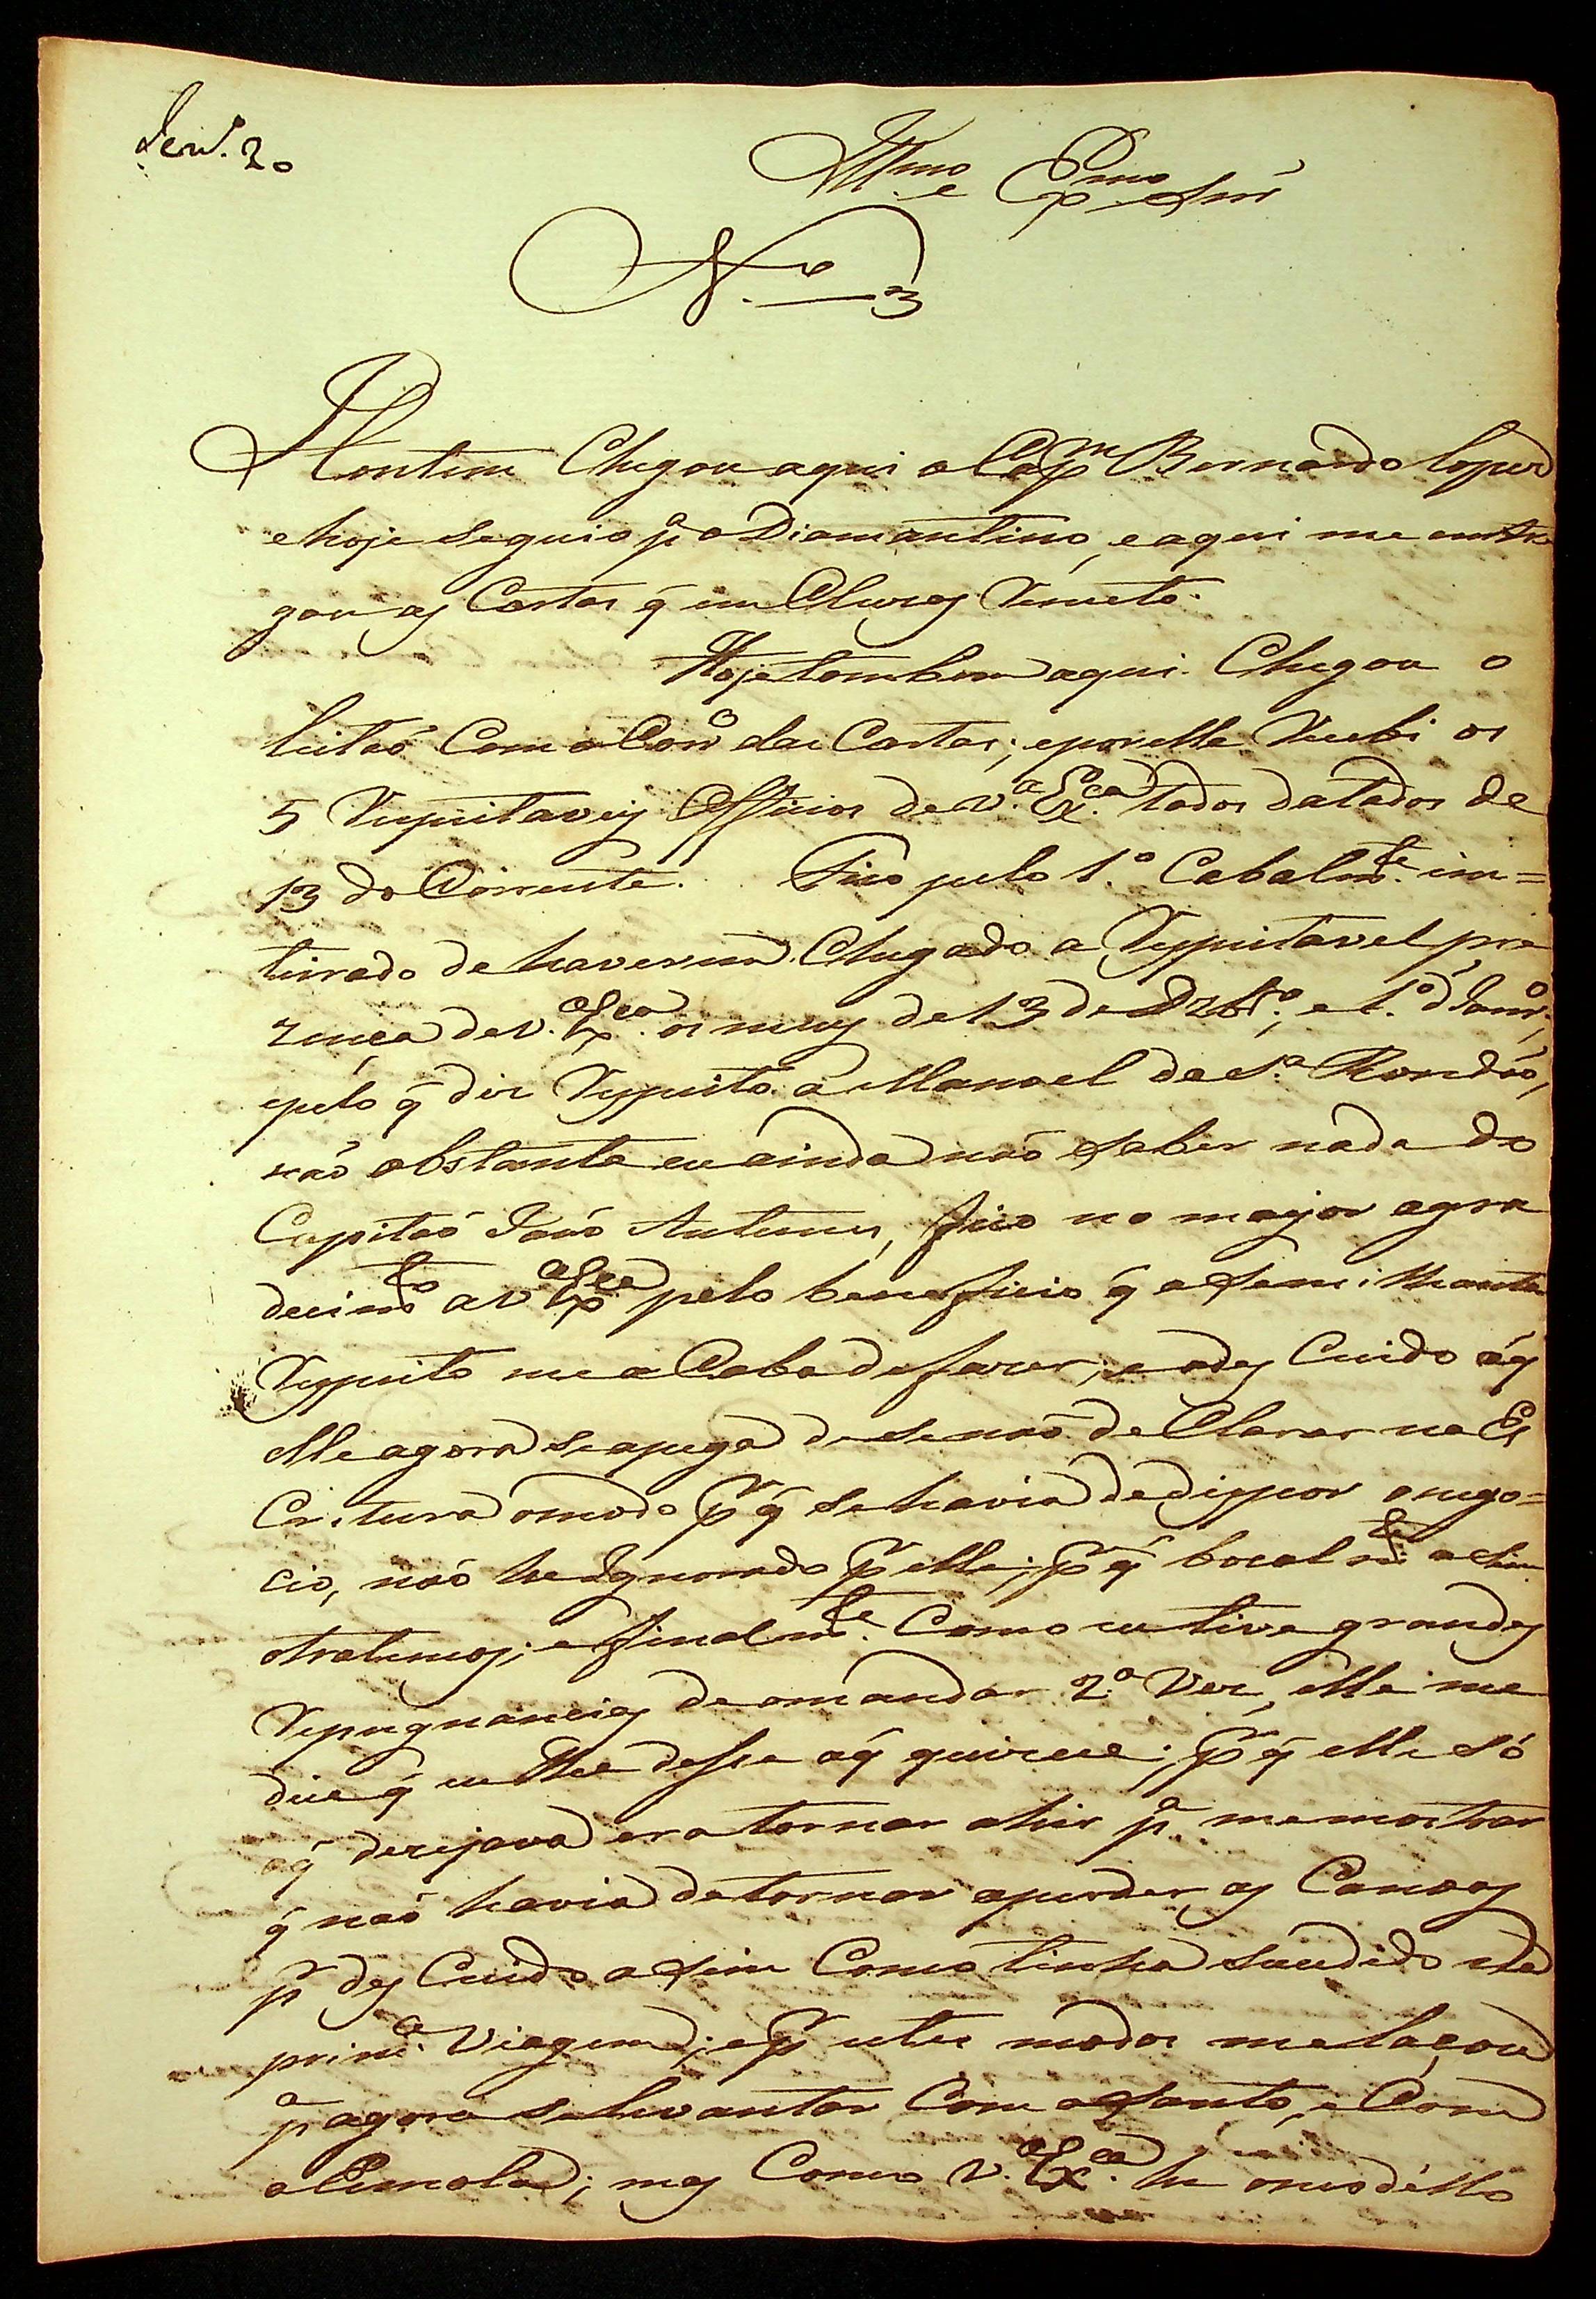 Ill.mo e Ex.mo Snr
N.o 3
Hontem Chegou aqui o Cap.m Bernardo Lopes
e hoje seguio p.a o Diamantino, e aqui me entre
gou as Cartas q̃ incluzas Remeto.
Hoje tambem aqui Chegou o
Leitaõ Com a Con.ta das Cartas; e por elle Recebi os
5 Respeitaveis Officios de V.a Ex.ca todos datados de
13 do Corrente. Fico pelo 1.o Cabalm.te in=
teirado de haverem Chegado a Respeitavel pre
zença de V.a Ex.ca os meus de 13 de Dzbr.o, e 1.o d'Janr.o,
e pelo q̃ diz Respeito a Manoel de S.a Rondaõ,
naõ obstante eu ainda naõ saber nada do
Capitaõ Joaõ Antunes, fico no mayor agra
decim.to a V.a Ex.ca pelo beneficio q̃ a semilhante
Respeito me a Caba de fazer; e o des Cuido á q̃
elle agora se apega de se naõ de Clarar na Es
Critura o modo p.r q̃ se havia de dispor o nego=
cio, naõ he Ignorado p.r elle; p.r q̃ bocalm.te a sim
otratemos; e finalm.te Como eu tive grandes
Repugnancias de o mandar 2.a Vez, elle me
dice q̃ eu lhe desse o q̃ quizece; p.r q̃ elle só
o q̃ dezejava era tornar a hir p.a me mostrar
q̃ naõ havia de tornar a perder as Canoas
p.r des Cuido a sim Como tinha sucedido na
prim.a Viagem; e p.r estes modos me laçou
p.a agora se levantar Com o Santo, e Com
a Esmola; mas Como V.a Ex.ca he o nosso